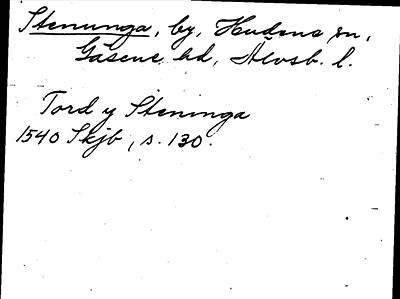 Stenunga, by, Hudene sn,
Gäsene hd, Älvsb. l.
Tord y Steninga
1540 Skjb, s. 130.